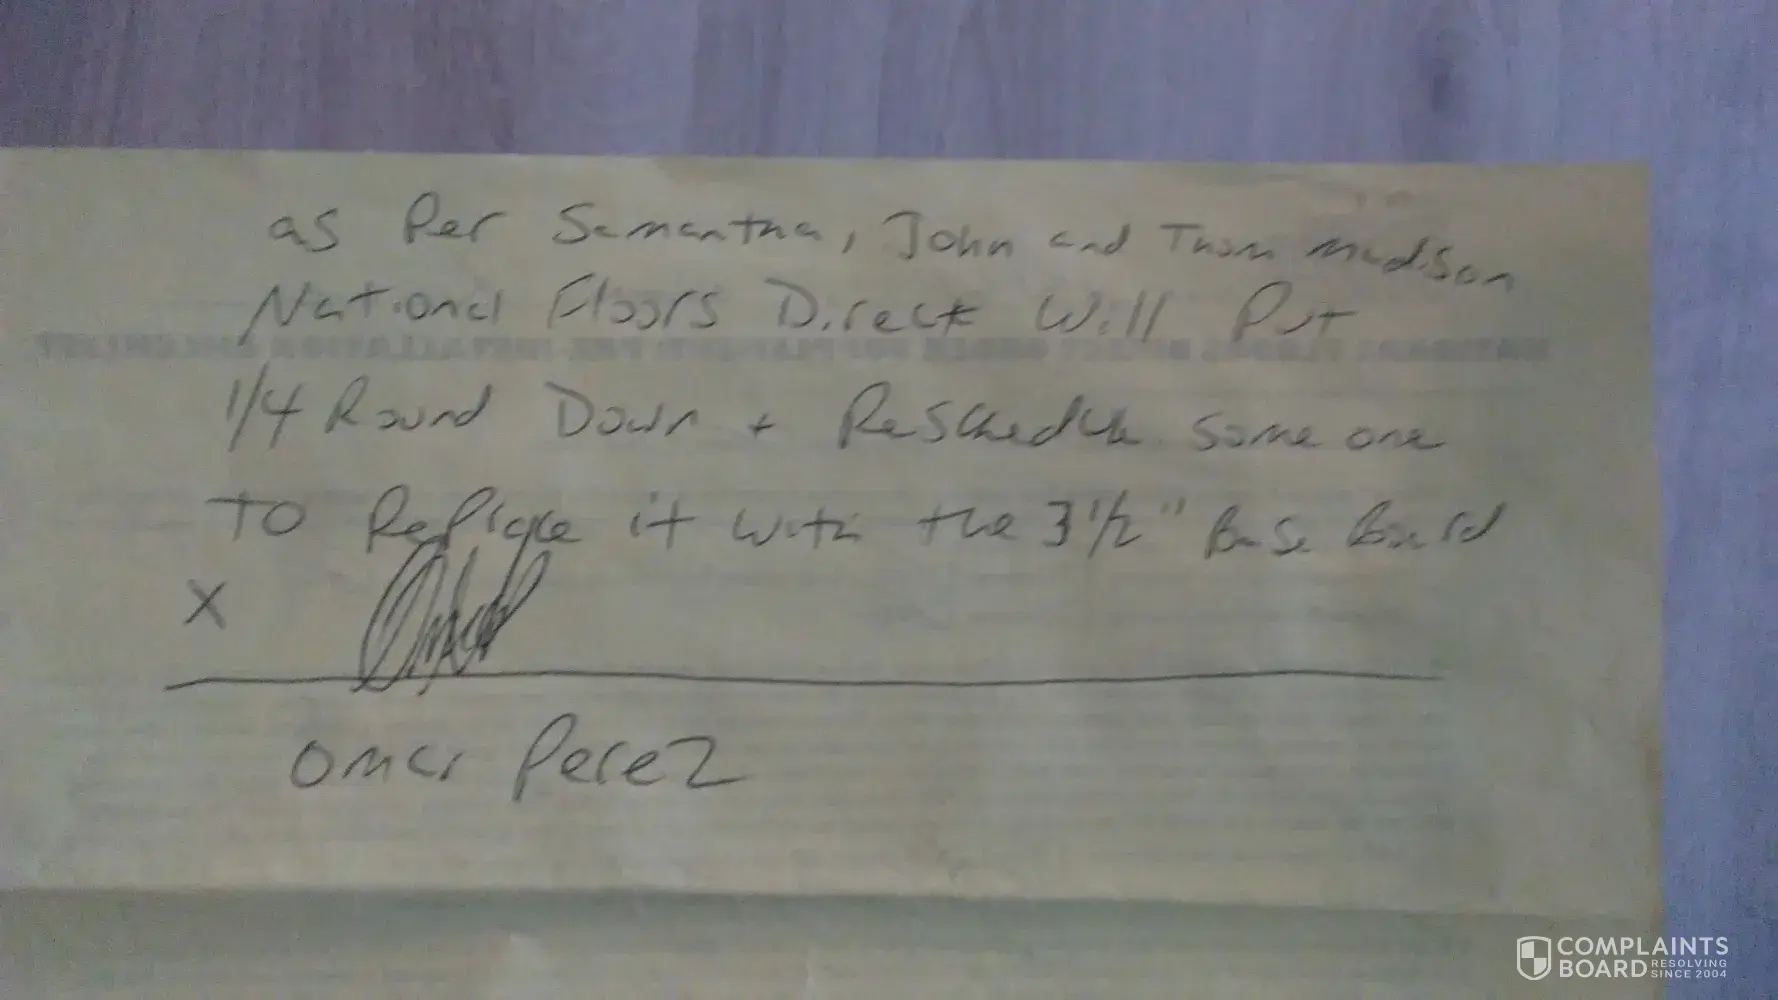 as Per Samantha, John and Thom Madison
National Floors Direct Will Put
1/4 Round Down + Reschedule some one
TO Replace it with the 3 1/2" Base Board
X
Omar Perez
COMPLAINTS
BOARD RESOLVING
SINCE 2004